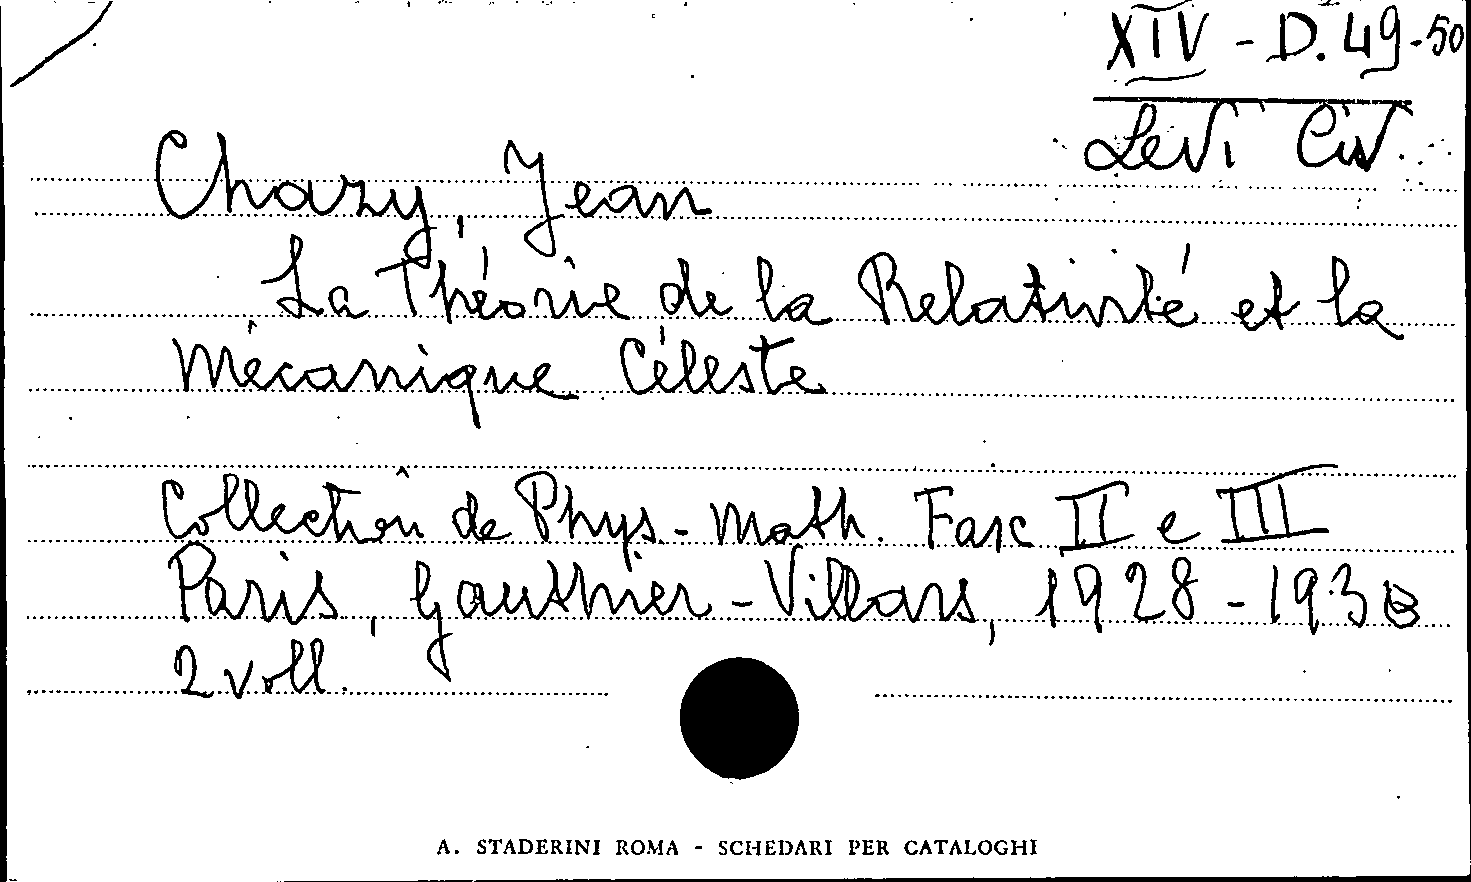 XIV - D. 49-50
Levi Civ.
Chazy, Jean
La Théorie de la Relativité et la
Mécanique Céleste
Collection de Phys.- Math. Fasc II e III
Paris, Gauthier-Villars, 1928-1930
2 voll.
A. STADERINI ROMA - SCHEDARI PER CATALOGHI